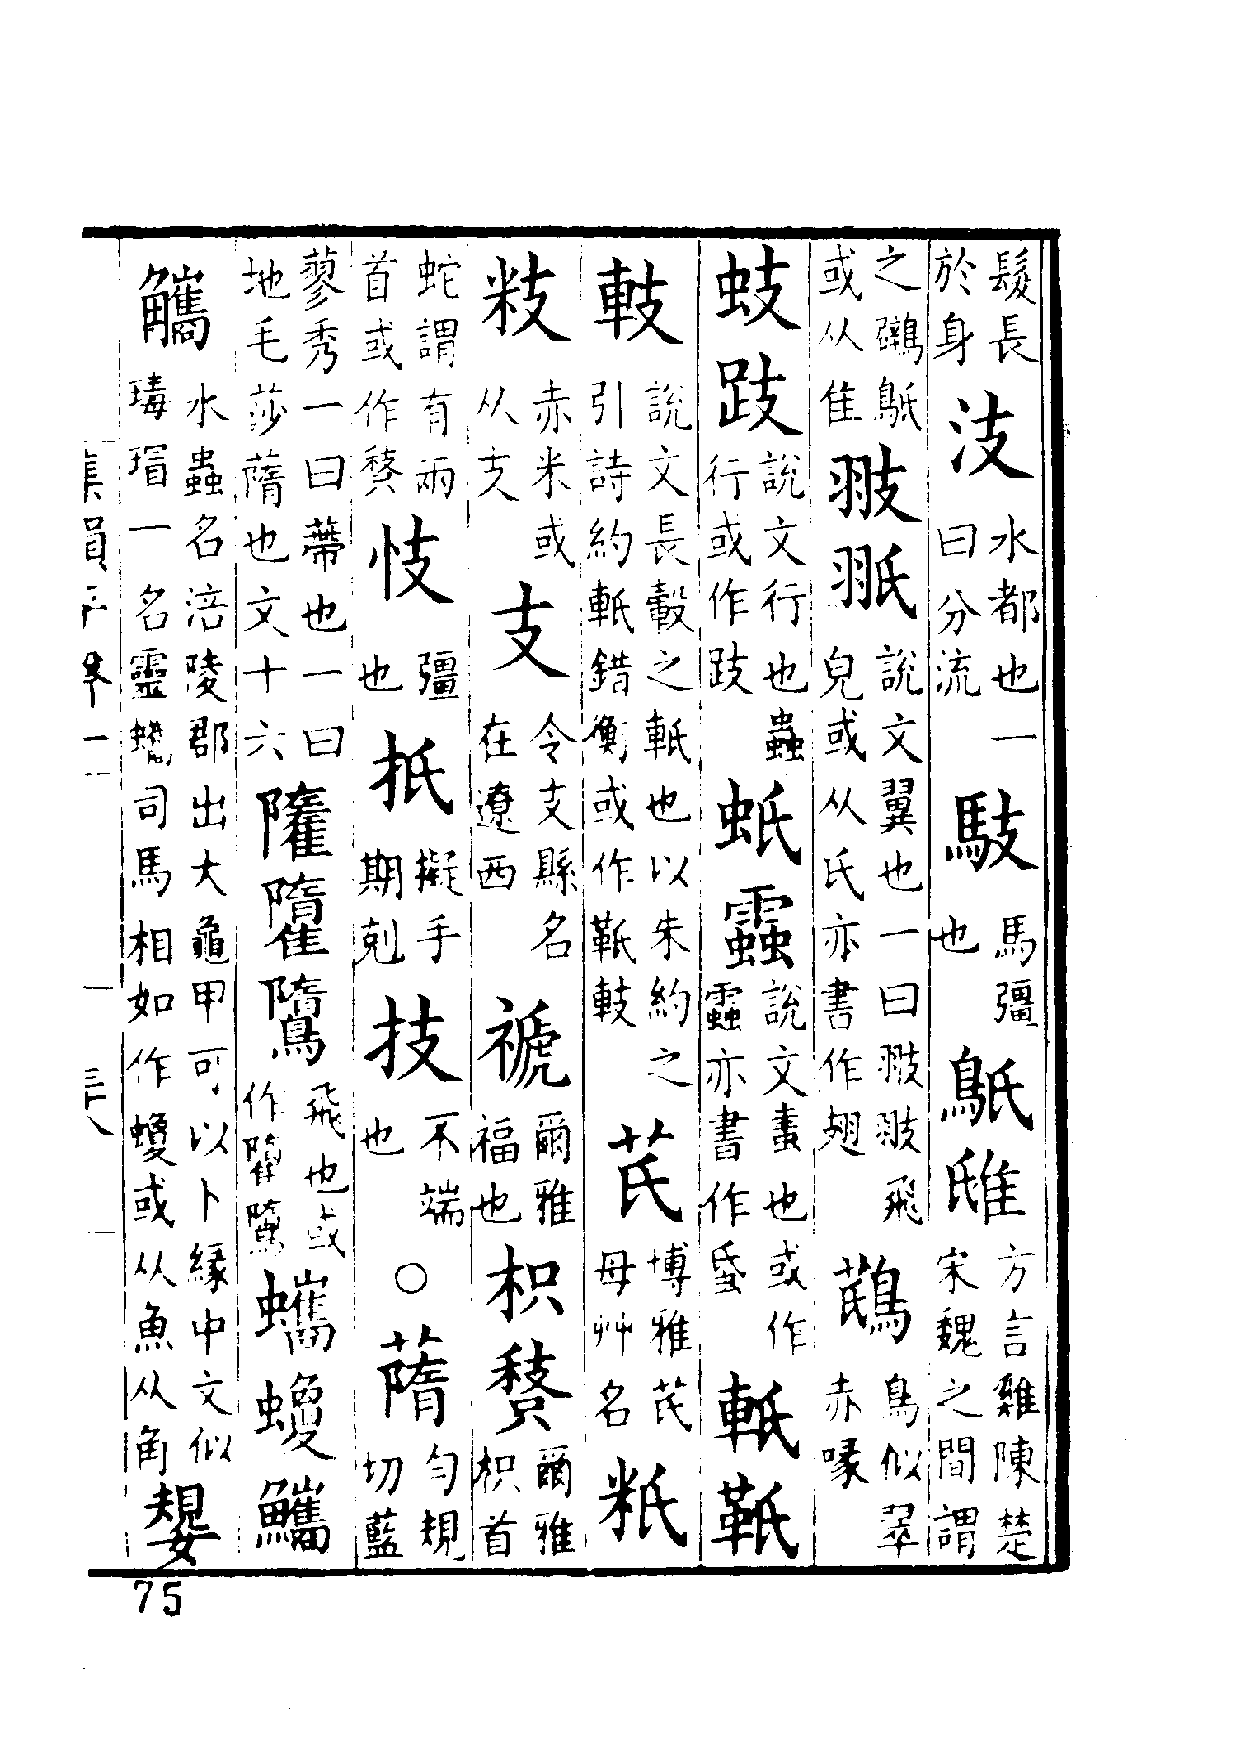 髮長於身汥水都也一曰分流馶馬彊也鳷䧴方言雞陳楚宋魏之間謂
之鸊鳷或从隹翄𦐊說文翼也一曰翄翄飛皃或从氏亦書作翅䳅鳥似翠赤喙
蚑跂說文行也蟲行或作跂蚔𧖨說文畫也或作𧖨亦書作𧊧軝䩃
𨋪說文長轂之軝也以朱約之引詩約軝錯衡或作䩃𨋪芪博雅芪母艸名䊠
䊧赤米或从支支令支縣名在遼西禠爾雅福也枳𧶐爾雅枳首
蛇謂有兩首或作𧶐忮彊也扺擬手期剋技不端也○蓨勻規切藍
蓼秀一曰蔕也一曰地毛莎蓨也文十六飛也或作
水蟲名涪陵郡出大龜甲可以卜緣中文似瑇瑁一名靈蠵司馬相如作或从魚从角嫢
集韻平聲一
三十八
75